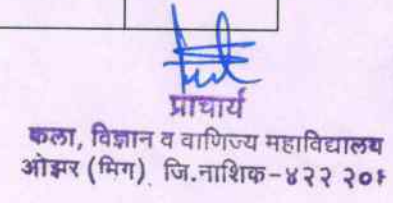 प्राचार्य
कला, विज्ञान व वाणिज्य महाविद्यालय
ओझर (मिग) जि.नाशिक-४२२ २०६